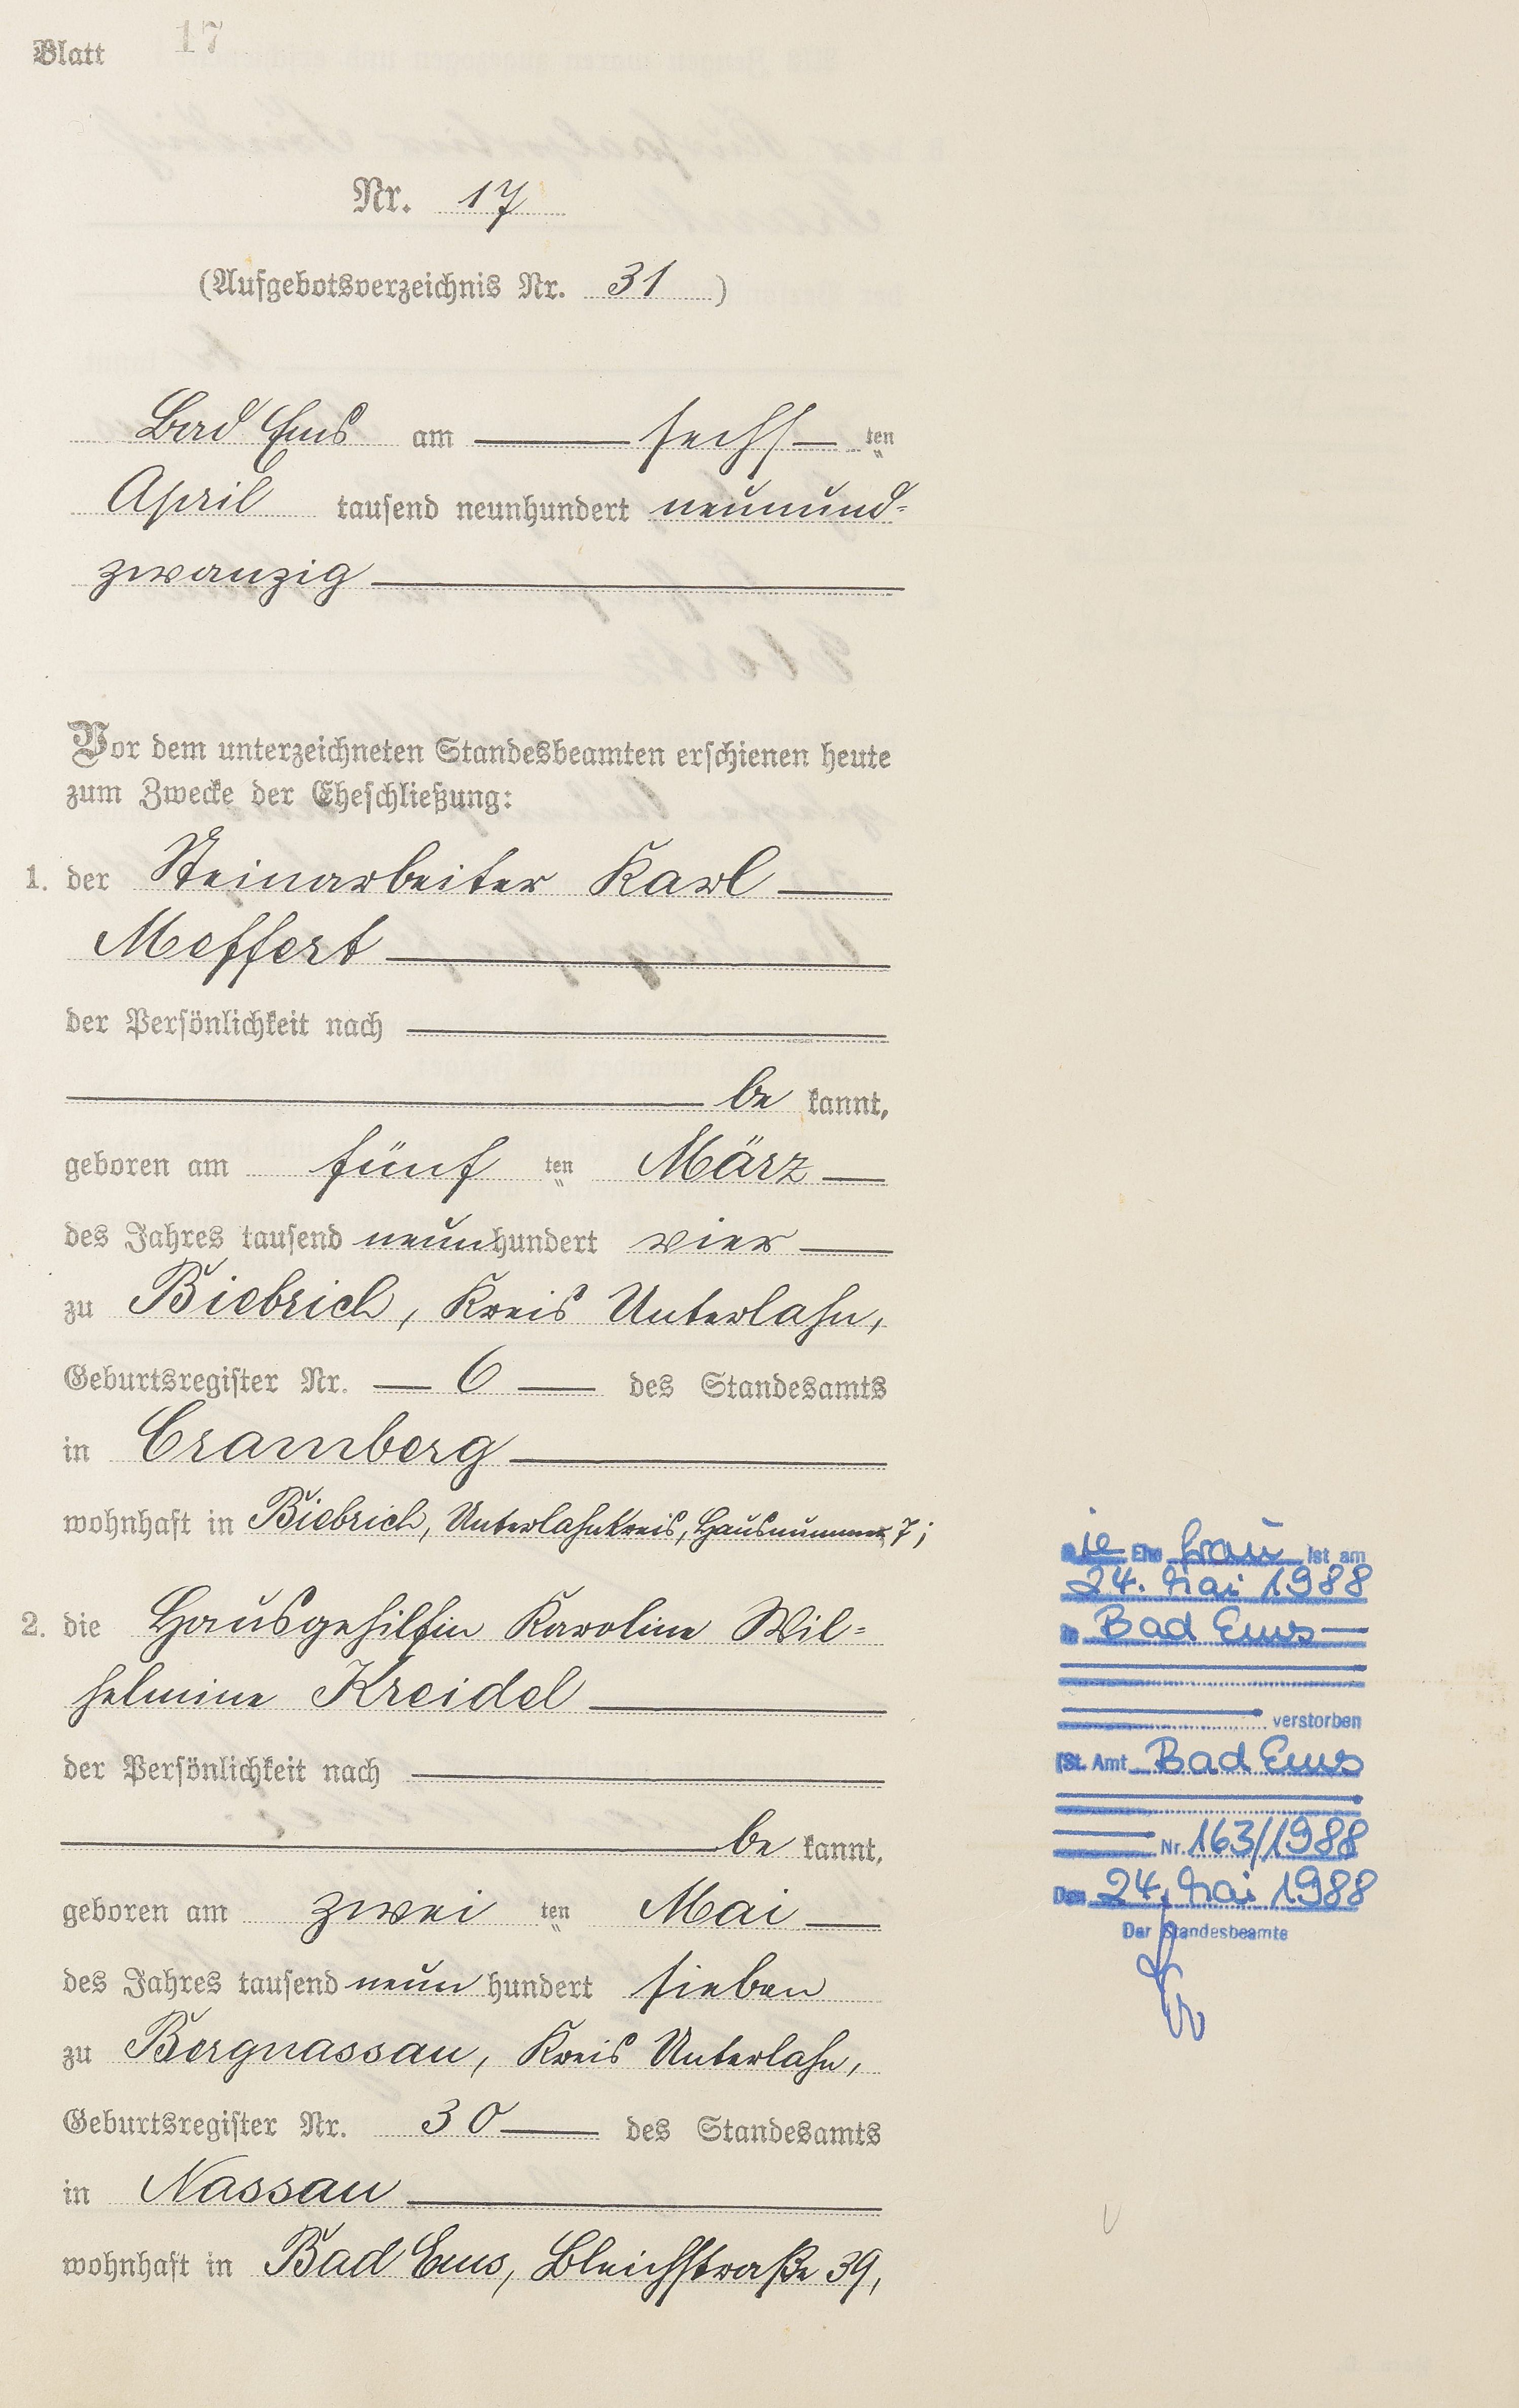 Blatt 17
Nr. 17
(Aufgebotsverzeichnis Nr. 31)
Bad Ems am sechsten
April tausend neunhundert neunund-
zwanzig
Vor dem unterzeichneten Standesbeamten erschienen heute
zum Zwecke der Eheschließung:
1. der Steinarbeiter Karl
Meffert
der Persönlichkeit nach
be kannt,
geboren am fünf ten März
des Jahres tausend neunhundert vier
zu Biebrich, Kreis Unterlahn,
Geburtsregister Nr. 6 des Standesamts
in Cramberg
wohnhaft in Biebrich, Unterlahnkreis, Hausnummer 7;
2. die Hausgehilfin Karoline Wil-
helmine Kreidel
der Persönlichkeit nach
be kannt,
geboren am zwei ten Mai
des Jahres tausend neun hundert sieben
zu Bergnassau, Kreis Unterlahn,
Geburtsregister Nr. 30 des Standesamts
in Nassau
wohnhaft in Bad Ems, Bleichstraße 39,
Die Ehefrau ist am
24. Mai 1988
in Bad Ems
verstorben
(St. Amt Bad Ems
Nr. 163/1988
Den 24. Mai 1988
Der Standesbeamte